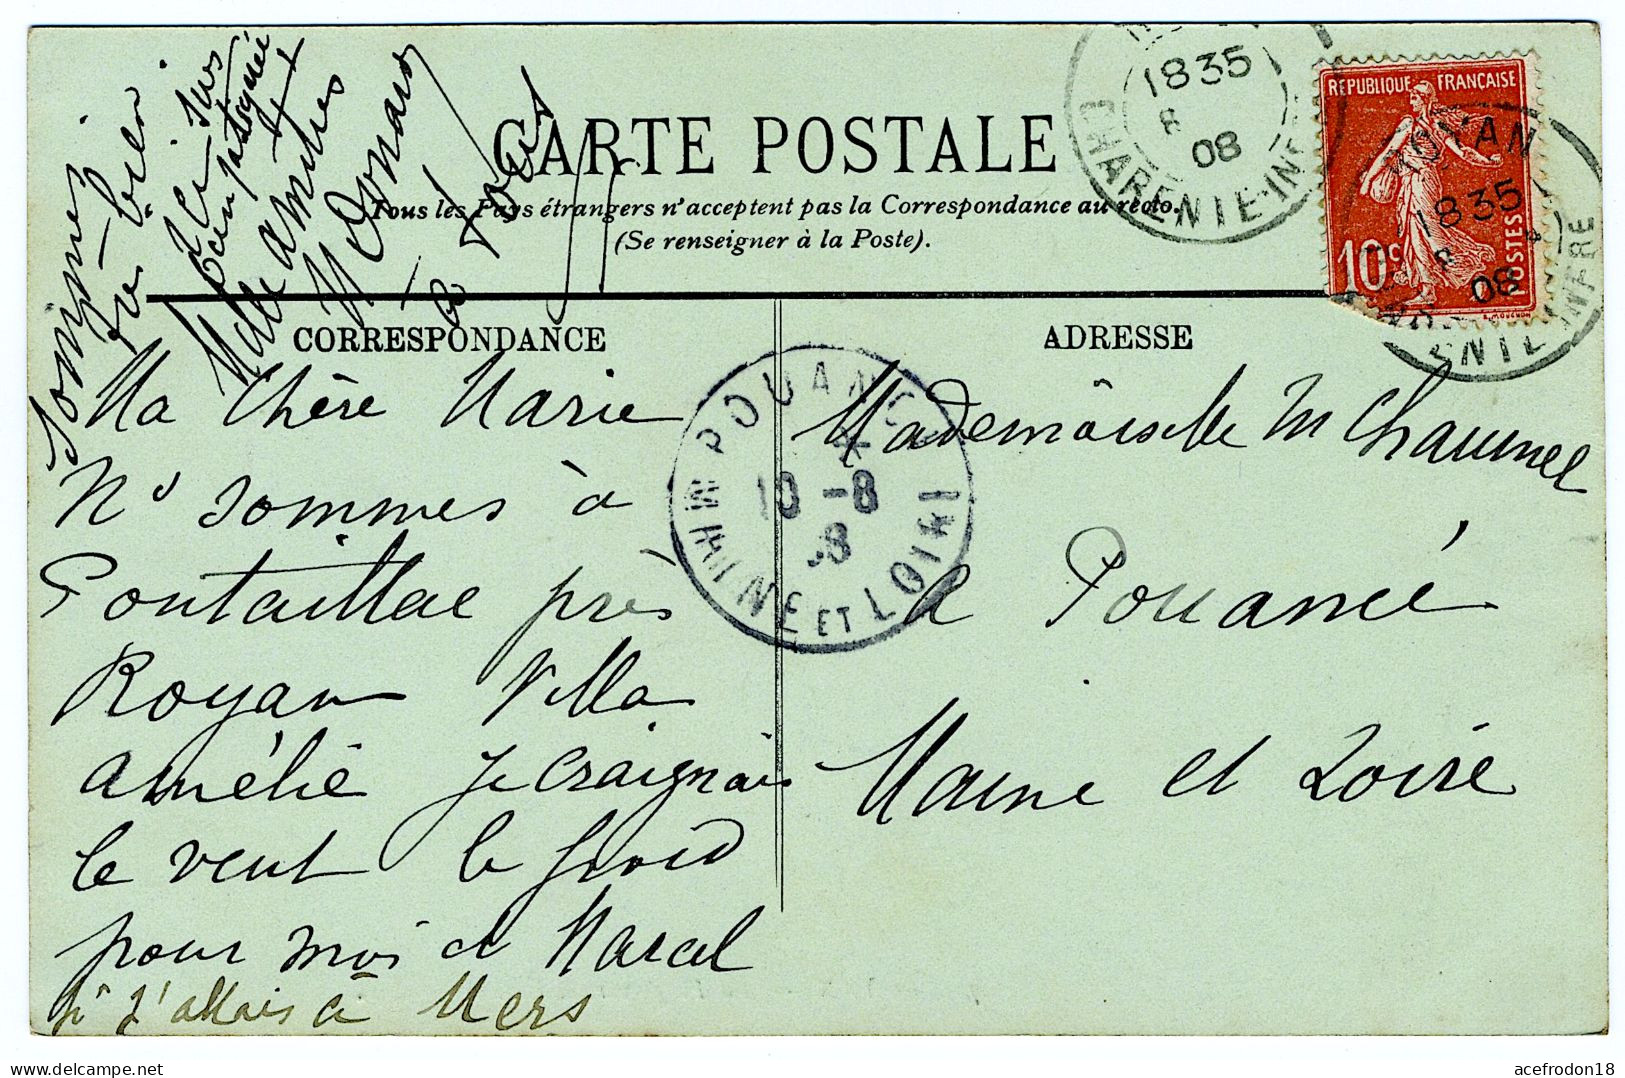 CARTE POSTALE
Tous les Pays étrangers n'acceptent pas la Correspondance au recto.
(Se renseigner à la Poste).
CORRESPONDANCE
ADRESSE
RÉPUBLIQUE FRANÇAISE
10c
POSTES
ROYAN
1835
8
08
CHARENTE-INFRE
1835
8
08
CHARENTE-INFRE
POUANCÉ
10 -8
08
MAINE ET LOIRE
Ma Chère Marie
Ns sommes à
Pontaillac près
Royan Villa
Amélie Je craignais
le vent le froid
pour moi et Marcel
si j'allais à Mers
sommes
bien
ici
amitiés
Mademoiselle M Chaumel
à Pouancé
Maine et Loire
acefrodon18